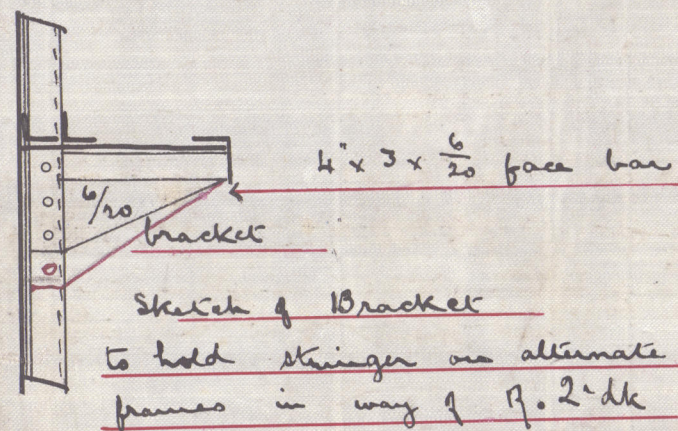 4" x 3 x 6/20 face bar
6/20
bracket
Sketch of Bracket
to hold stringer on alternate
frames in way of R. 2ⁿ dk